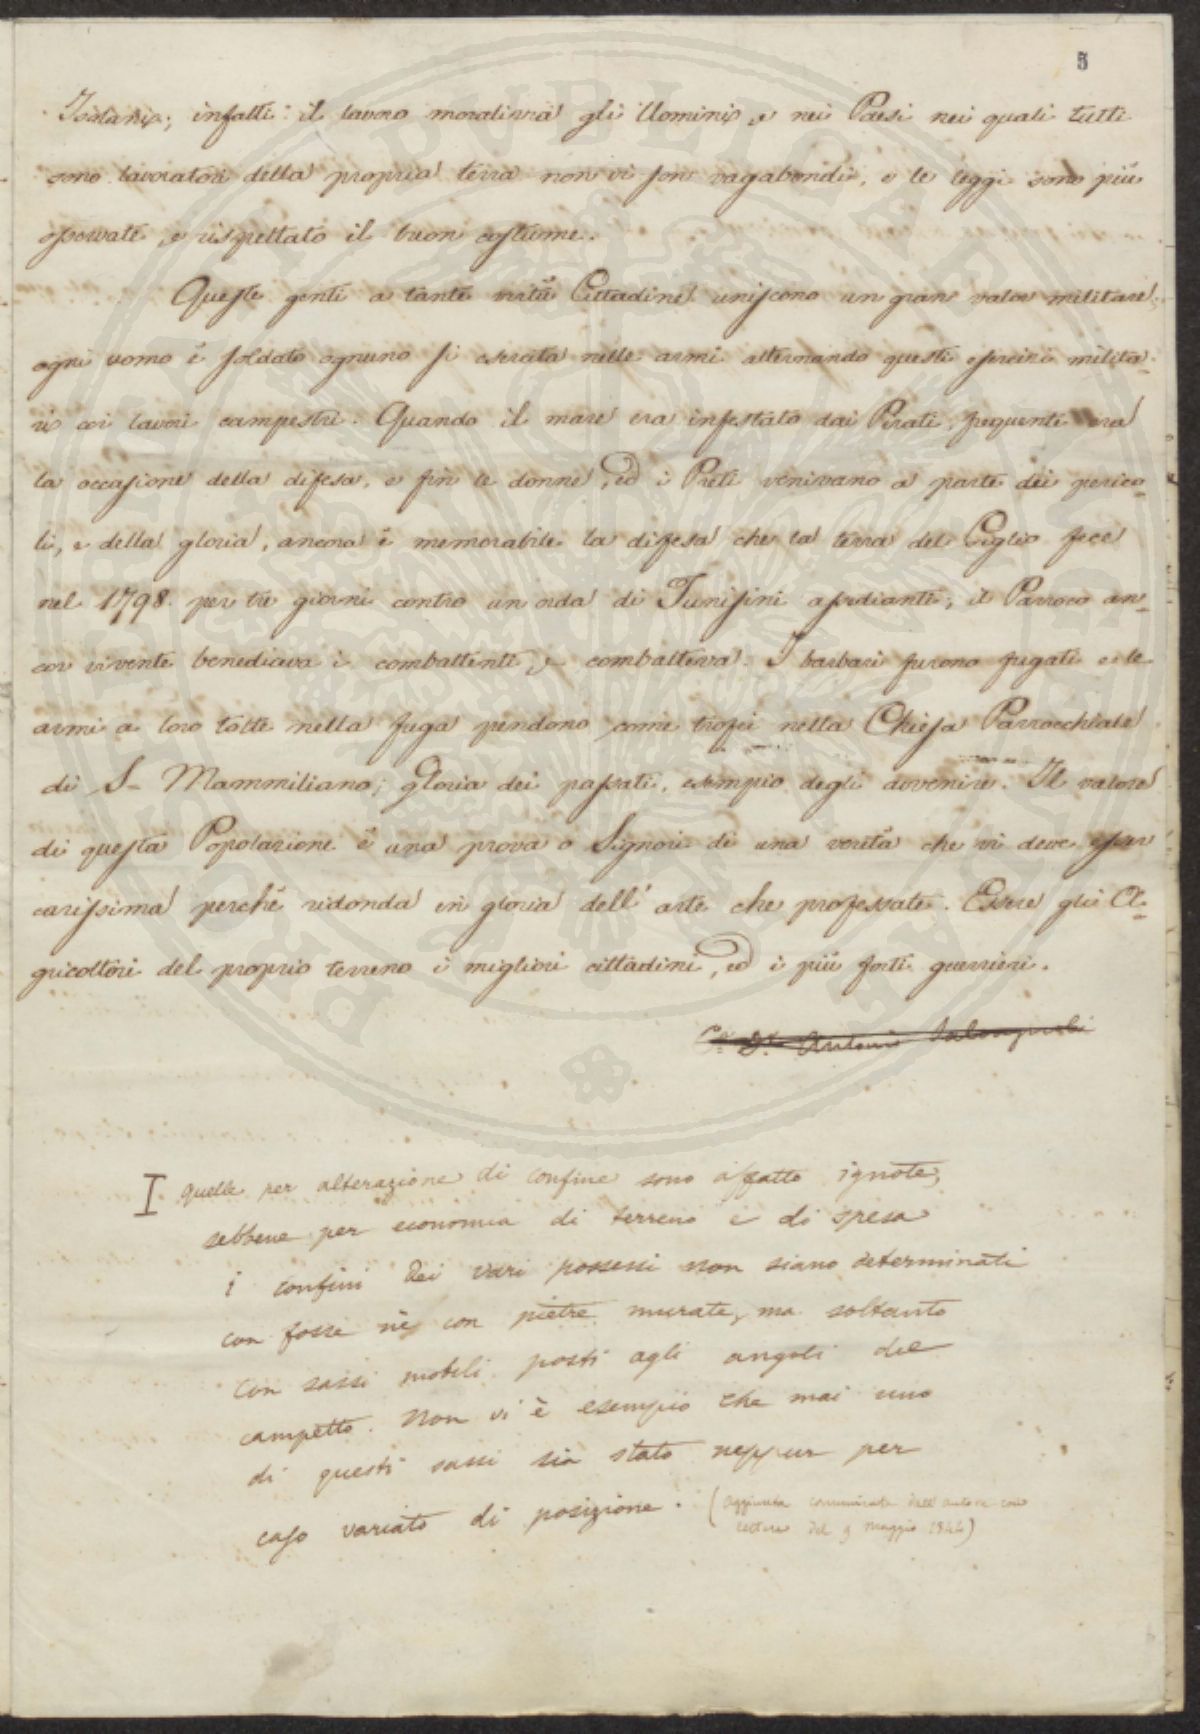 5
Isolani; infatti: il lavoro moralizza gli Uomini, e nei Paesi nei quali tutti
sono lavoratori della propria terra non vi son vagabondi, e le leggi sono più
osservate, e rispettato il buon costume.
Queste genti a tante virtù Cittadine uniscono un gran valor militare;
ogni uomo è soldato ognuno si esercita nelle armi alternando questi esercizi milita-
ri coi lavori campestri. Quando il mare era infestato dai Pirati, frequente era
la occasione della difesa, e fin le donne, ed i Preti venivano a parte dei perico-
li, e della gloria, ancora è memorabile la difesa che la terra del Giglio fece
nel 1798. per tre giorni contro un orda di Tunisini assedianti; il Parroco an-
cor vivente benediceva i combattenti, e combatteva. I barbari furono fugati e le
armi a loro tolte nella fuga pendono come trofei nella Chiesa Parrocchiale
di S. Mammiliano; gloria dei passati, esempio degli avvenire. Il valore
di questa Popolazione è una prova o Signori di una verità che vi deve esser
carissima perchè ridonda in gloria dell' arte che professate. Essere gli A-
gricoltori del proprio terreno i migliori cittadini, ed i più forti guerrieri.
Dr. Antonio
I quelle per alterazione di confine sono affatto ignote,
sebbene per economia di terreno e di spesa
i confini dei vari possessi non siano determinati
con fosse nè con pietre murate, ma soltanto
con sassi mobili posti agli angoli del
campetto. Non vi è esempio che mai uno
di questi sassi sia stato neppur per
caso variato di posizione. (aggiunta comunicata dall'autore con
lettera del 9 maggio 1844)